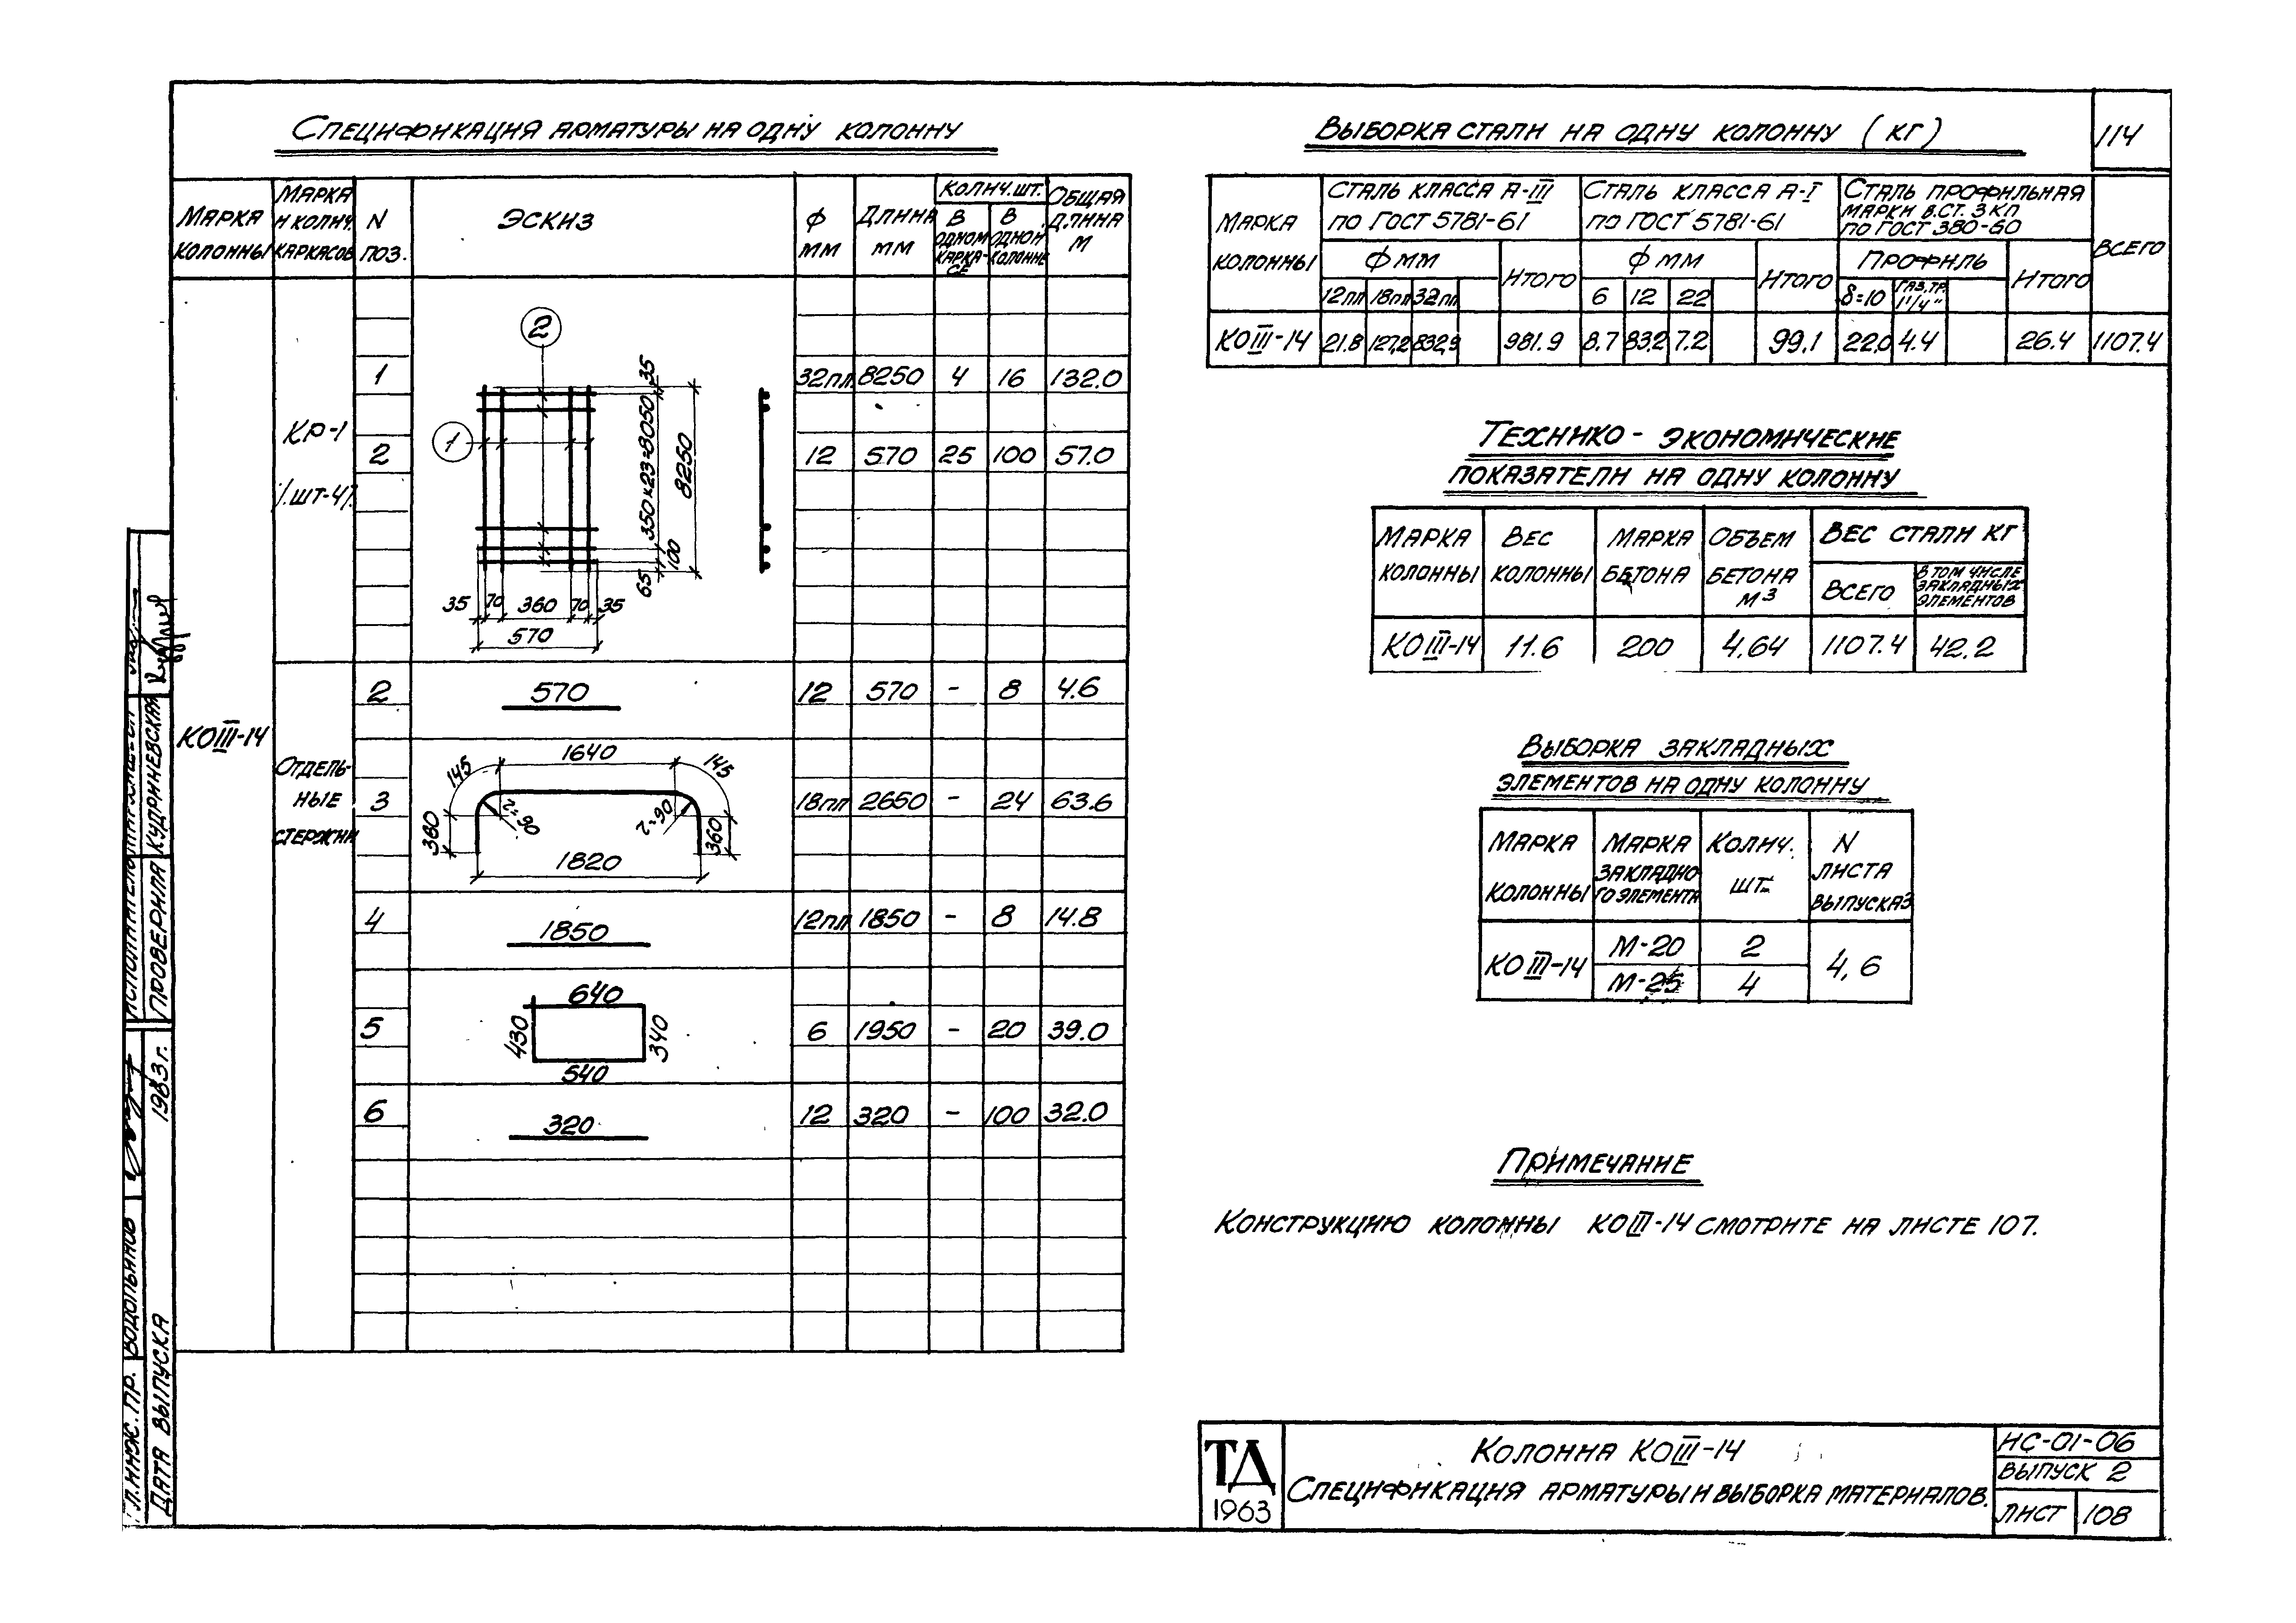 114
Спецификация арматуры на одну колонну
Марка колонны
Марка и колич. каркасов
N поз.
Эскиз
Ф мм
Длина мм
Колич. шт.
в одном каркасе
в одной колонне
Общая длина м
КОIII-14
КР-1
/шт-4/
1 32пл 8250 4 16 132.0
2 12 570 25 100 57.0
2
1
35
350х23=8050
8250
100
65
35 70 360 70 35
570
Отдель-
ные
стержни
2 570 12 570 - 8 4.6
3 18пл 2650 - 24 63.6
1640
145 145
360 r=90 r=90 360
1820
4 1850 12пл 1850 - 8 14.8
5 6 1950 - 20 39.0
640
430 340
540
6 320 12 320 - 100 32.0
Выборка стали на одну колонну (кг)
Марка колонны
Сталь класса А-III
по ГОСТ 5781-61
Сталь класса А-I
по ГОСТ 5781-61
Сталь профильная
марки В.Ст. 3 кп
по ГОСТ 380-60
Всего
Ф мм Итого Ф мм Итого Профиль Итого
12пл 18пл 32пл 6 12 22 δ=10 Газ.тр. 1 1/4"
КОIII-14 21.8 127,2 832,9 981.9 8.7 83.2 7.2 99.1 22.0 4.4 26.4 1107.4
Технико-экономические
показатели на одну колонну
Марка колонны
Вес колонны
Марка бетона
Объем бетона м3
Вес стали кг
Всего
в том числе закладных элементов
КОIII-14 11.6 200 4,64 1107.4 42.2
Выборка закладных
элементов на одну колонну
Марка колонны
Марка закладного элемента
Колич. шт.
N листа выпуска 3
КОIII-14 М-20 2 4, 6
М-25 4
Примечание
Конструкцию колонны КОIII-14 смотрите на листе 107.
ТД
1963
Колонна КОIII-14
Спецификация арматуры и выборка материалов.
ИС-01-06
Выпуск 2
Лист 108
Проверила Кудриневская
Гл.инж.пр. Водопьянов
Дата выпуска 1963г.